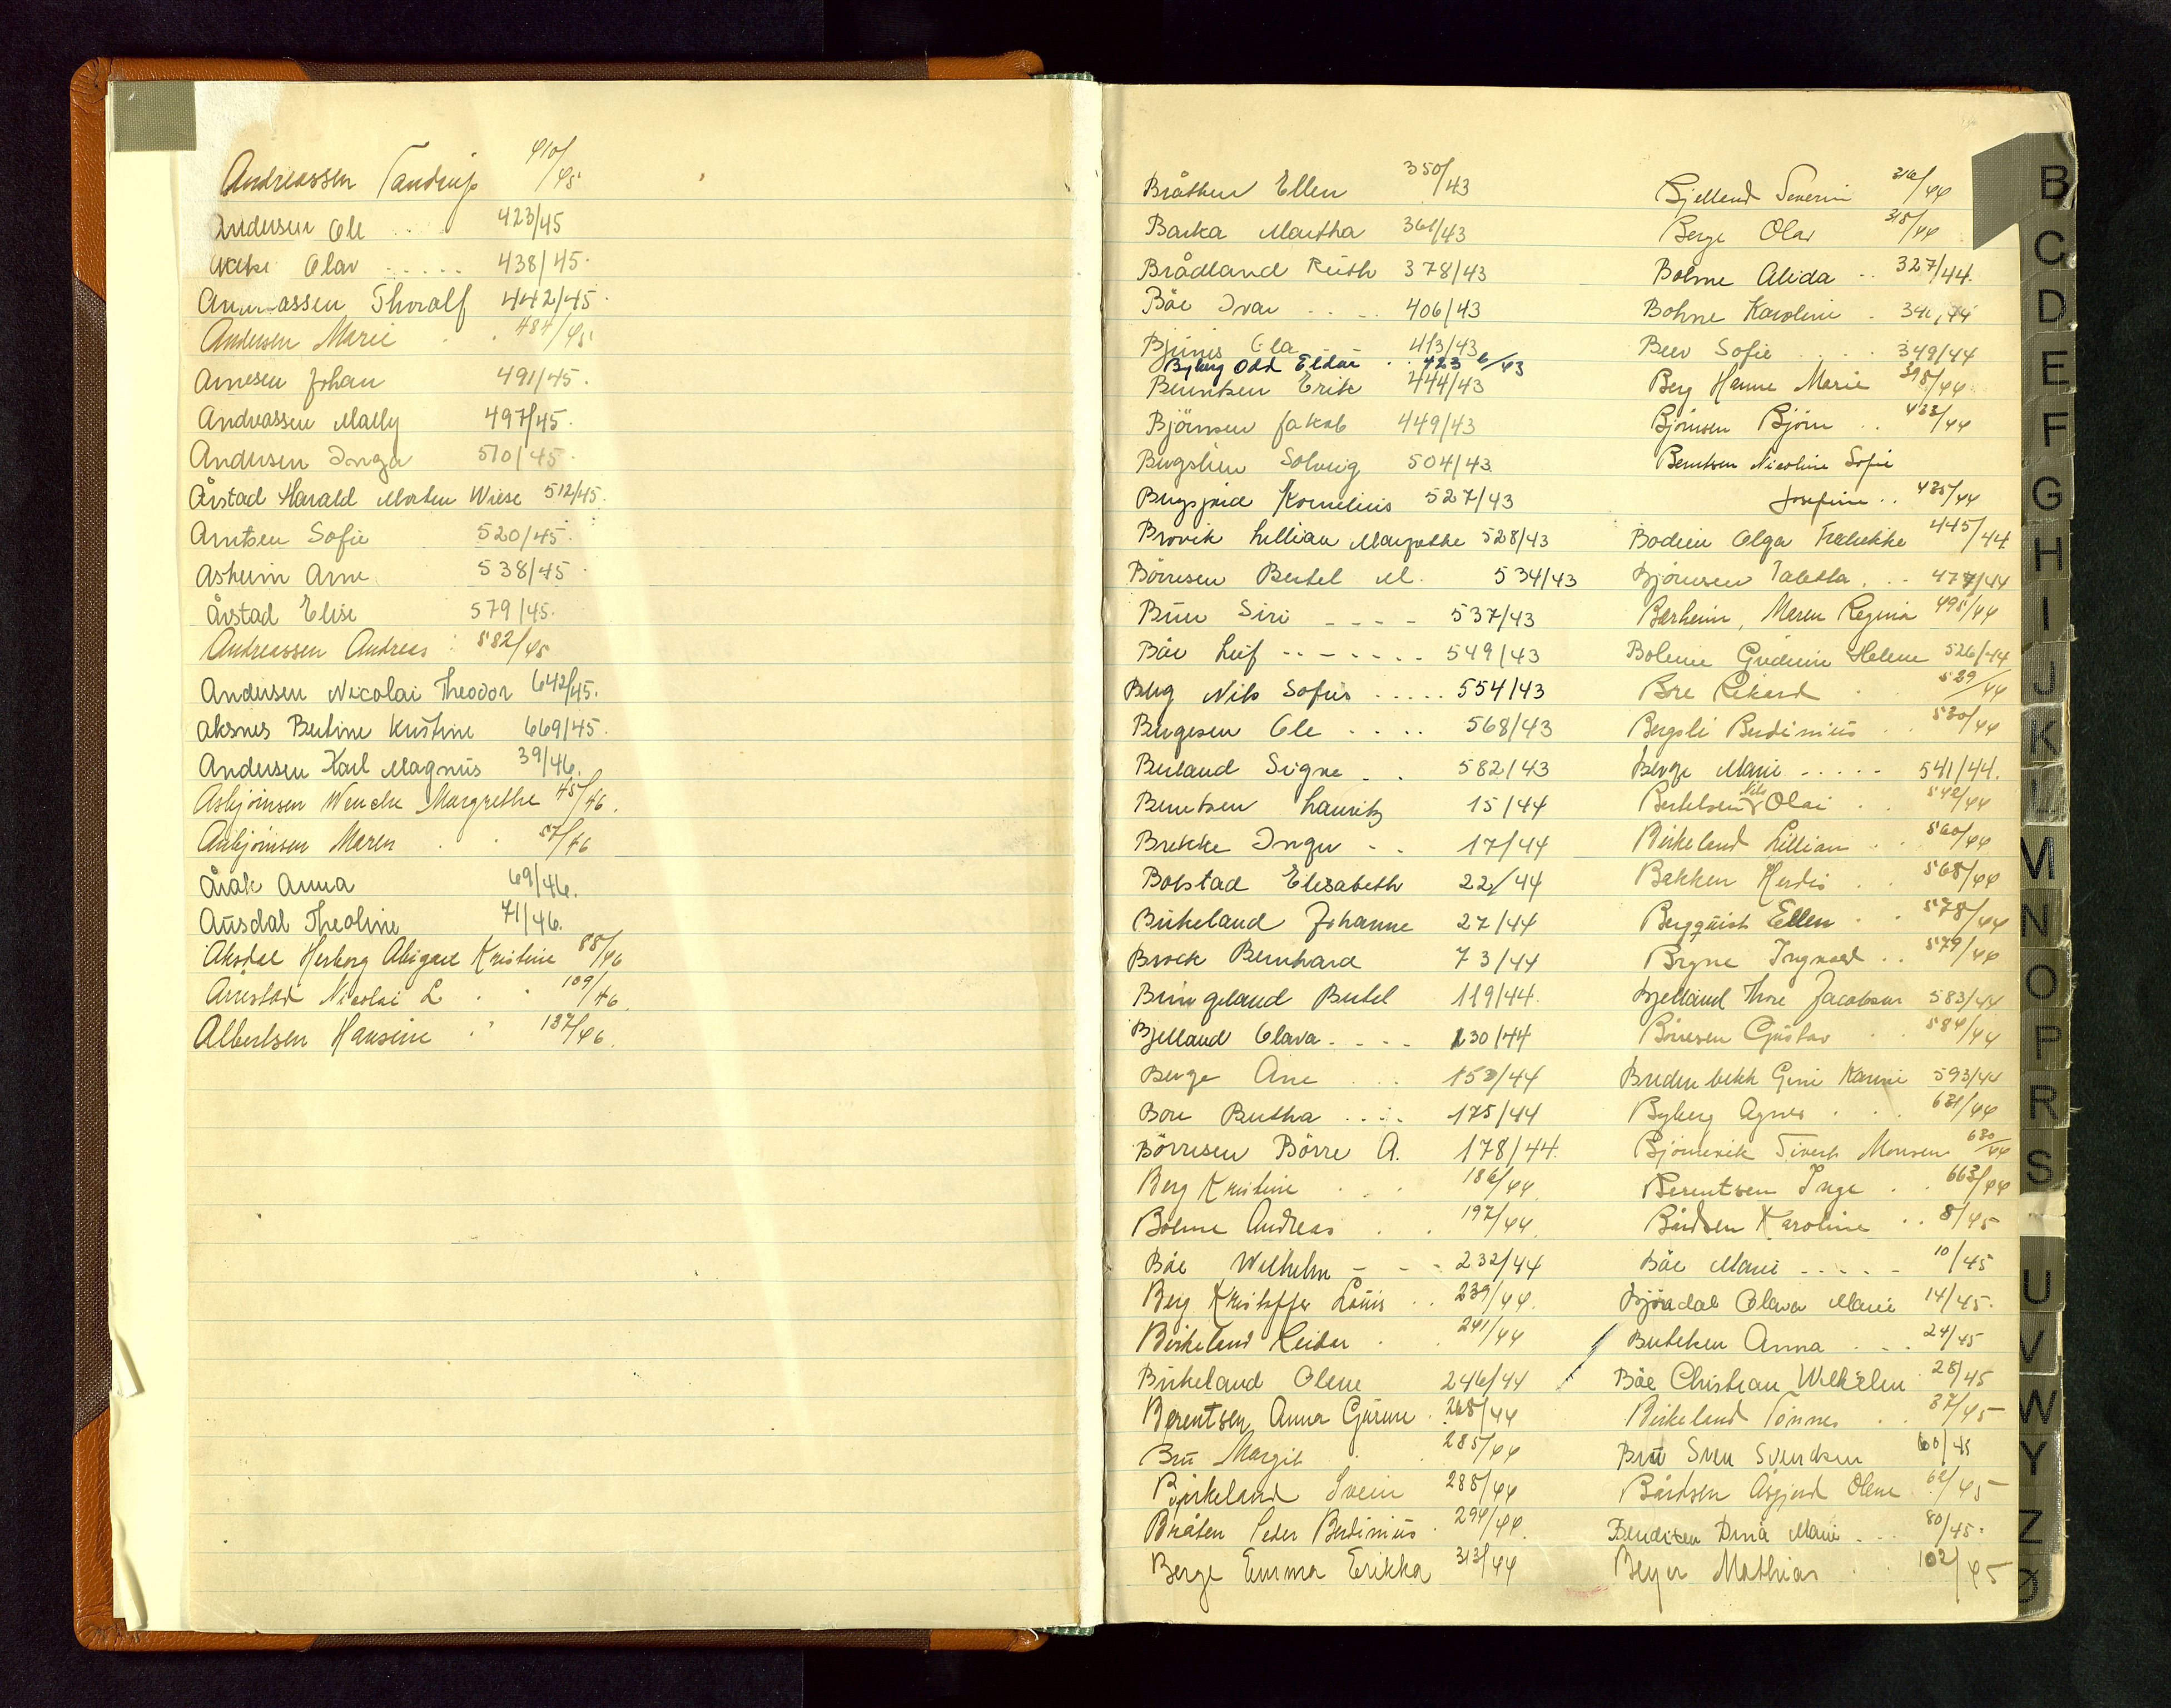 Andreassen Tandrup 410/45
Andersen Ole .. 423/45
Olav ..... 438/45.
Andreassen Thoralf 442/45.
Andersen Marie . . 484/45
Arnesen Johan 491/45.
Andreassen Mally 497/45.
Andersen Inga 510/45.
Årstad Harald Morten Wiese 512/45.
Arntsen Sofie 520/45.
Asheim Arne 538/45.
Årstad Elise 579/45.
Andreassen Andreas : 582/45
Andersen Nicolai Theodor 642/45.
Aksnes Bertine Kristine 669/45.
Andersen Karl Magnus 39/46.
Asbjörnsen Wenche Margrethe 45/46.
Asbjörnsen Maren . . 57/46
Årak Anna 69/46.
Ausdal Theoline 71/46.
Aksdal Herborg Abigael Kristine 88/46
Årrestad Nicolai L . . 109/46.
Albertsen Hansine . 137/46.
Bråthen Ellen 350/43
Barka Martha 361/43
Brådland Ruth 378/43
Båe Ivar .... 406/43
Ola 413/43
Byberg Odd Eldar .. 423 b/43
Berntsen Erik 444/43
Björnsen Jakob 449/43
Bergslien Solveig 504/43
Kornelius 527/43
Brovik Lillian Margrethe 528/43
Börresen Bertel M. 534/43
Bue Siri ---- 537/43
Båe Leif ------- 549/43
Berg Nils Sofus ..... 554/43
Birgesen Ole .... 568/43
Berland Signe .. 582/43
Berntsen Lauritz 15/44
Brekke Inga -- 17/44
Bolstad Elisabeth 22/44
Birkeland Johanne 27/44
Brock Bernhard 73/44
Bringeland Bertel 119/44.
Bjelland Olava .... 130/44
Berge Ane ... 153/44
Bore Bertha .... 175/44
Börresen Börre A. 178/44.
Berg Kristine . . . 186/44.
Bohne Andreas . . 197/44.
Båe Wilhelm - - - 232/44
Berg Kristoffer Louis .. 239/44.
Birkeland Reidar . . 241/44
Birkeland Olene 246/44
Berentsen Anna Gurine . 268/44
Bru Margit . . 285/44
Birkeland Svein 288/44
Bråten Peder Berdinius . 294/44.
Berge Emma Erikka 313/44
Bjelland Severin 316/44
Berge Olav 315/44
Bohne Alida .. 327/44.
Bohne Karoline . 341/44
Beer Sofie .... 349/44
Berg Hanne Marie 398/44.
Björnsen Björn .. 433/44
Berntsen Nicoline Sofie
Josefine .. 435/44
Bodin Olga Fredrikke 445/44
Björnsen Tabitha ... 477/44
Bærheim, Maren Regina 495/44
Bohne Gudrun Helene 526/44
Bore Rikard . 529/44
Bergsli Berdinius .. 530/44
Berge Marie ----- 541/44.
Nils
Bertelsen Olai .. 542/44
Birkeland Lillian .. 560/44
Bakken Herdis .. 568/44
Bergquist Ellen .. 578/44
Bryne Ingvald .. 579/44
Bjelland Thore Jacobsen 583/44
Börresen Gustav . . 584/44
Bredenbekk Gine Karine 593/44
Byberg Agnes ... 621/44
Björnevik Sivert Monsen 630/44
Berentsen Inge .. 663/44
Bårdsen Karoline .. 8/45
Båe Marie ----- 10/45
Bjørdal Olava Marie 14/45.
Anna ... 24/45
Båe Christian Wilhelm 28/45
Birkeland Tönnes .. 37/45
Bru Sven Svendsen 60/45
Bårdsen Asgjerd Olene 62/45
Bendixen Dina Marie ... 80/45.
Beyer Mathias . . 102/45
B
C
D
E
F
G
H
I
J
K
L
M
N
O
P
R
S
U
V
W
Y
Z
Ø